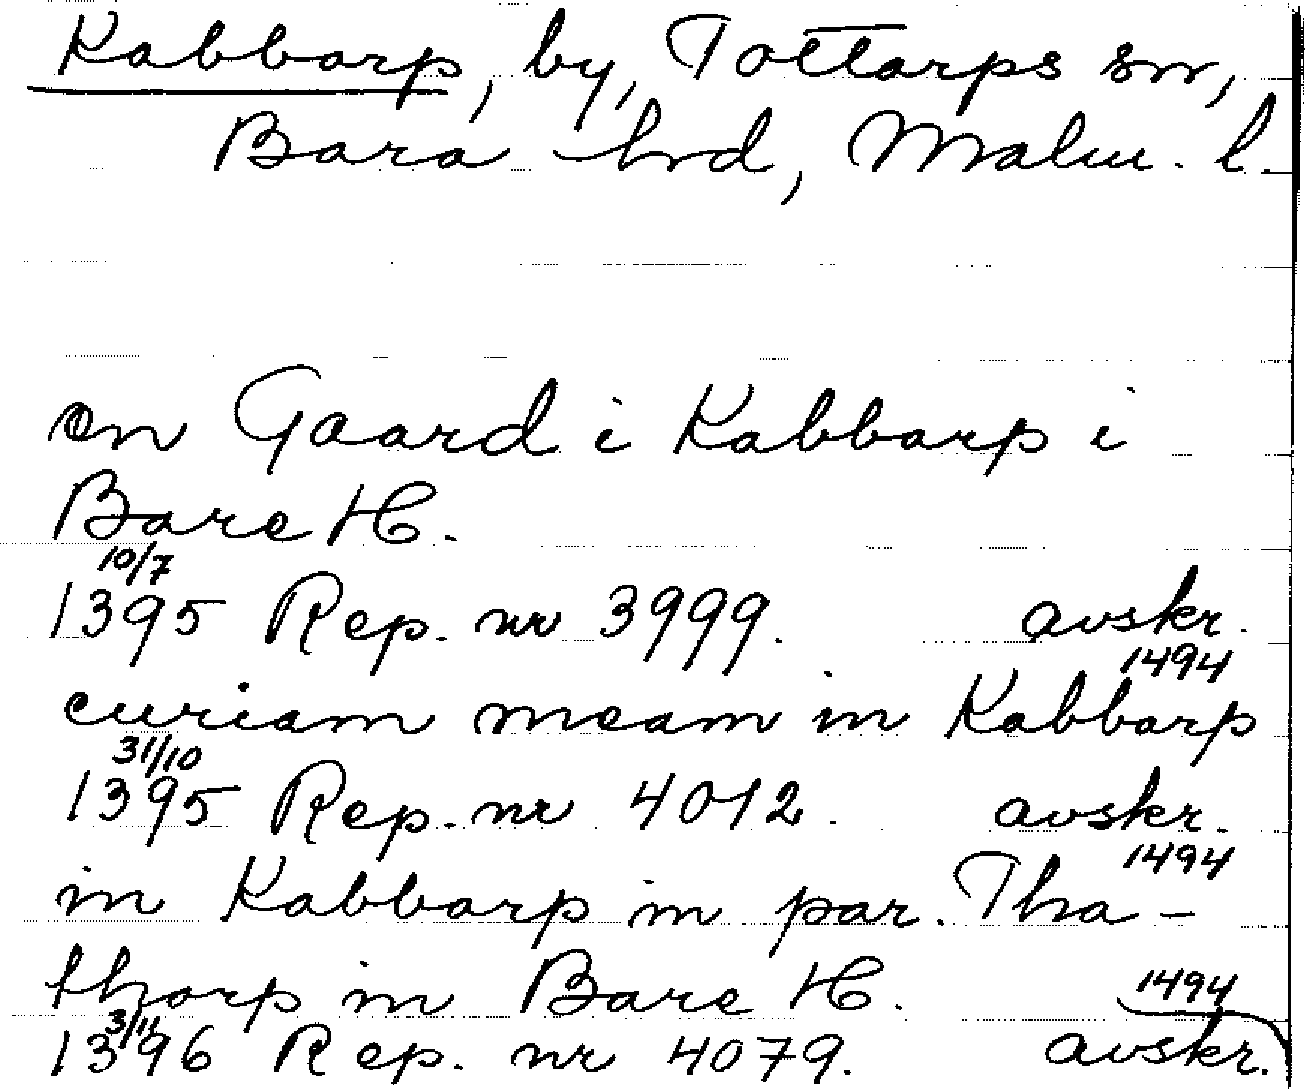 Kabbarp, by, Tottarps sn,
Bara hrd, Malm. l.
en Gaard i Kabbarp i
Bare H.
10/7
1395 Rep. nr 3999. avskr.
1494
curiam meam in Kabbarp
31/10
1395 Rep. nr 4012. avskr.
1494
in Kabbarp in par. Tha-
thorp in Bare H. 1494
3/11
1396 Rep. nr 4079. avskr.